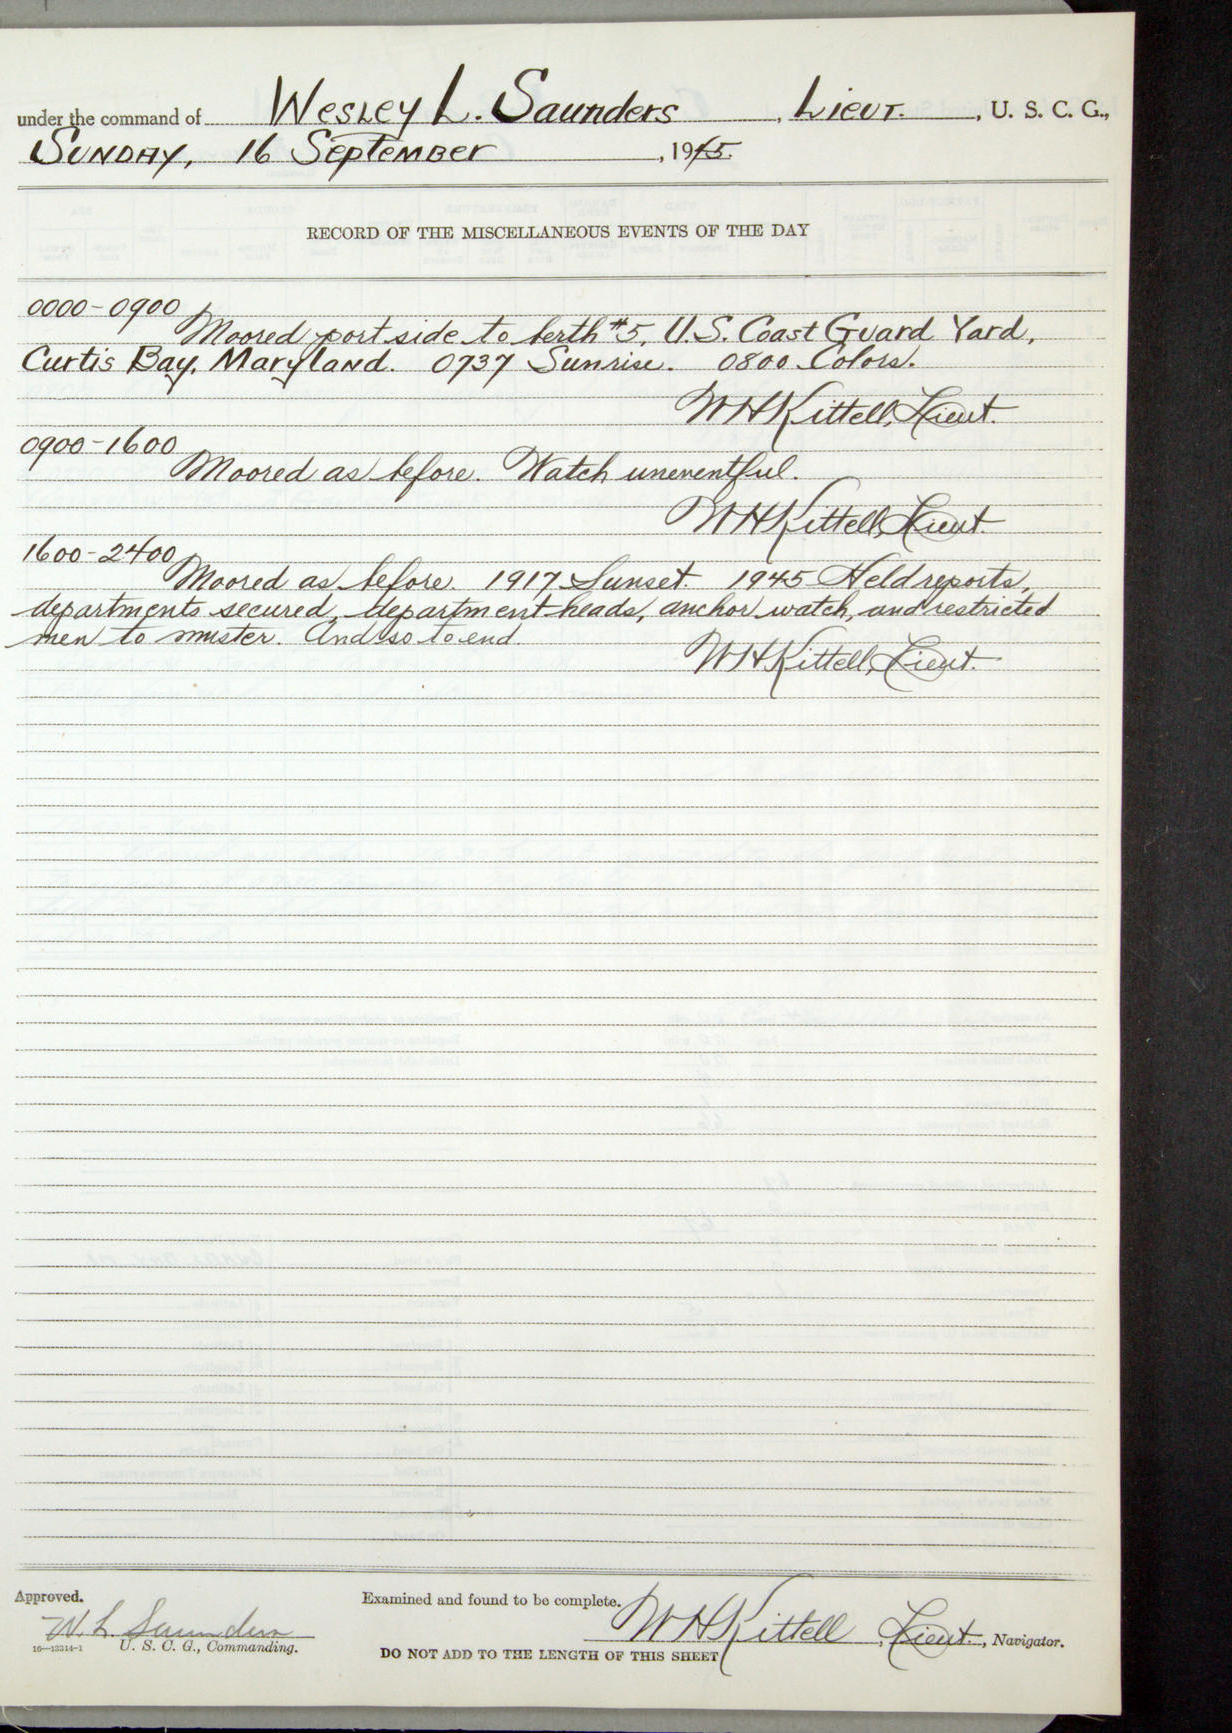 under the command of Wesley L. Saunders, Lieut., U. S. C. G.,
Sunday, 16 September, 1945.
RECORD OF THE MISCELLANEOUS EVENTS OF THE DAY
0000-0900
Moored port side to berth #5, U.S. Coast Guard Yard,
Curtis Bay, Maryland. 0737 Sunrise. 0800 Colors.
W H Kittell, Lieut.
0900-1600
Moored as before. Watch uneventful.
W H Kittell, Lieut.
1600-2400
Moored as before. 1917 Sunset. 1945 Held reports,
departments secured, department heads, anchor watch, and restricted
men to muster. And so to end.
W H Kittell, Lieut.
Approved.
Examined and found to be complete.
W. L. Saunders
W H Kittell, Lieut., Navigator.
16—13314-1 U. S. C. G., Commanding.
DO NOT ADD TO THE LENGTH OF THIS SHEET